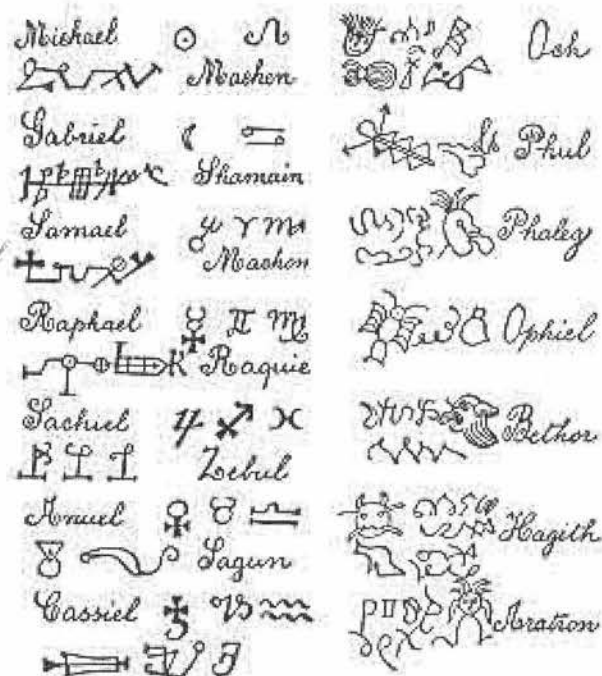 Michael
Machen
Gabriel
Shamain
Samael
Machon
Raphael
Raquie
Sachiel
Zebul
Anuel
Sagun
Cassiel
Och
Phul
Phaleg
Ophiel
Bethor
Hagith
Aratron